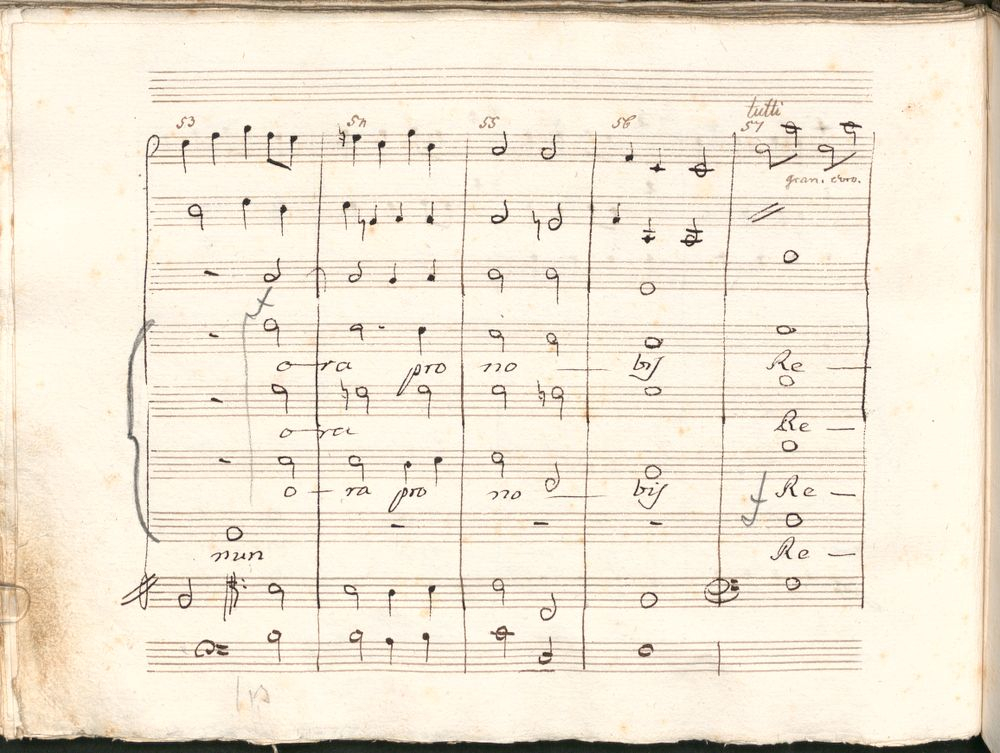 tutti
53 54 55 56 57
gran. coro.
o-ra pro no — bis Re —
o-ra Re —
o-ra pro no — bis Re —
nun Re —